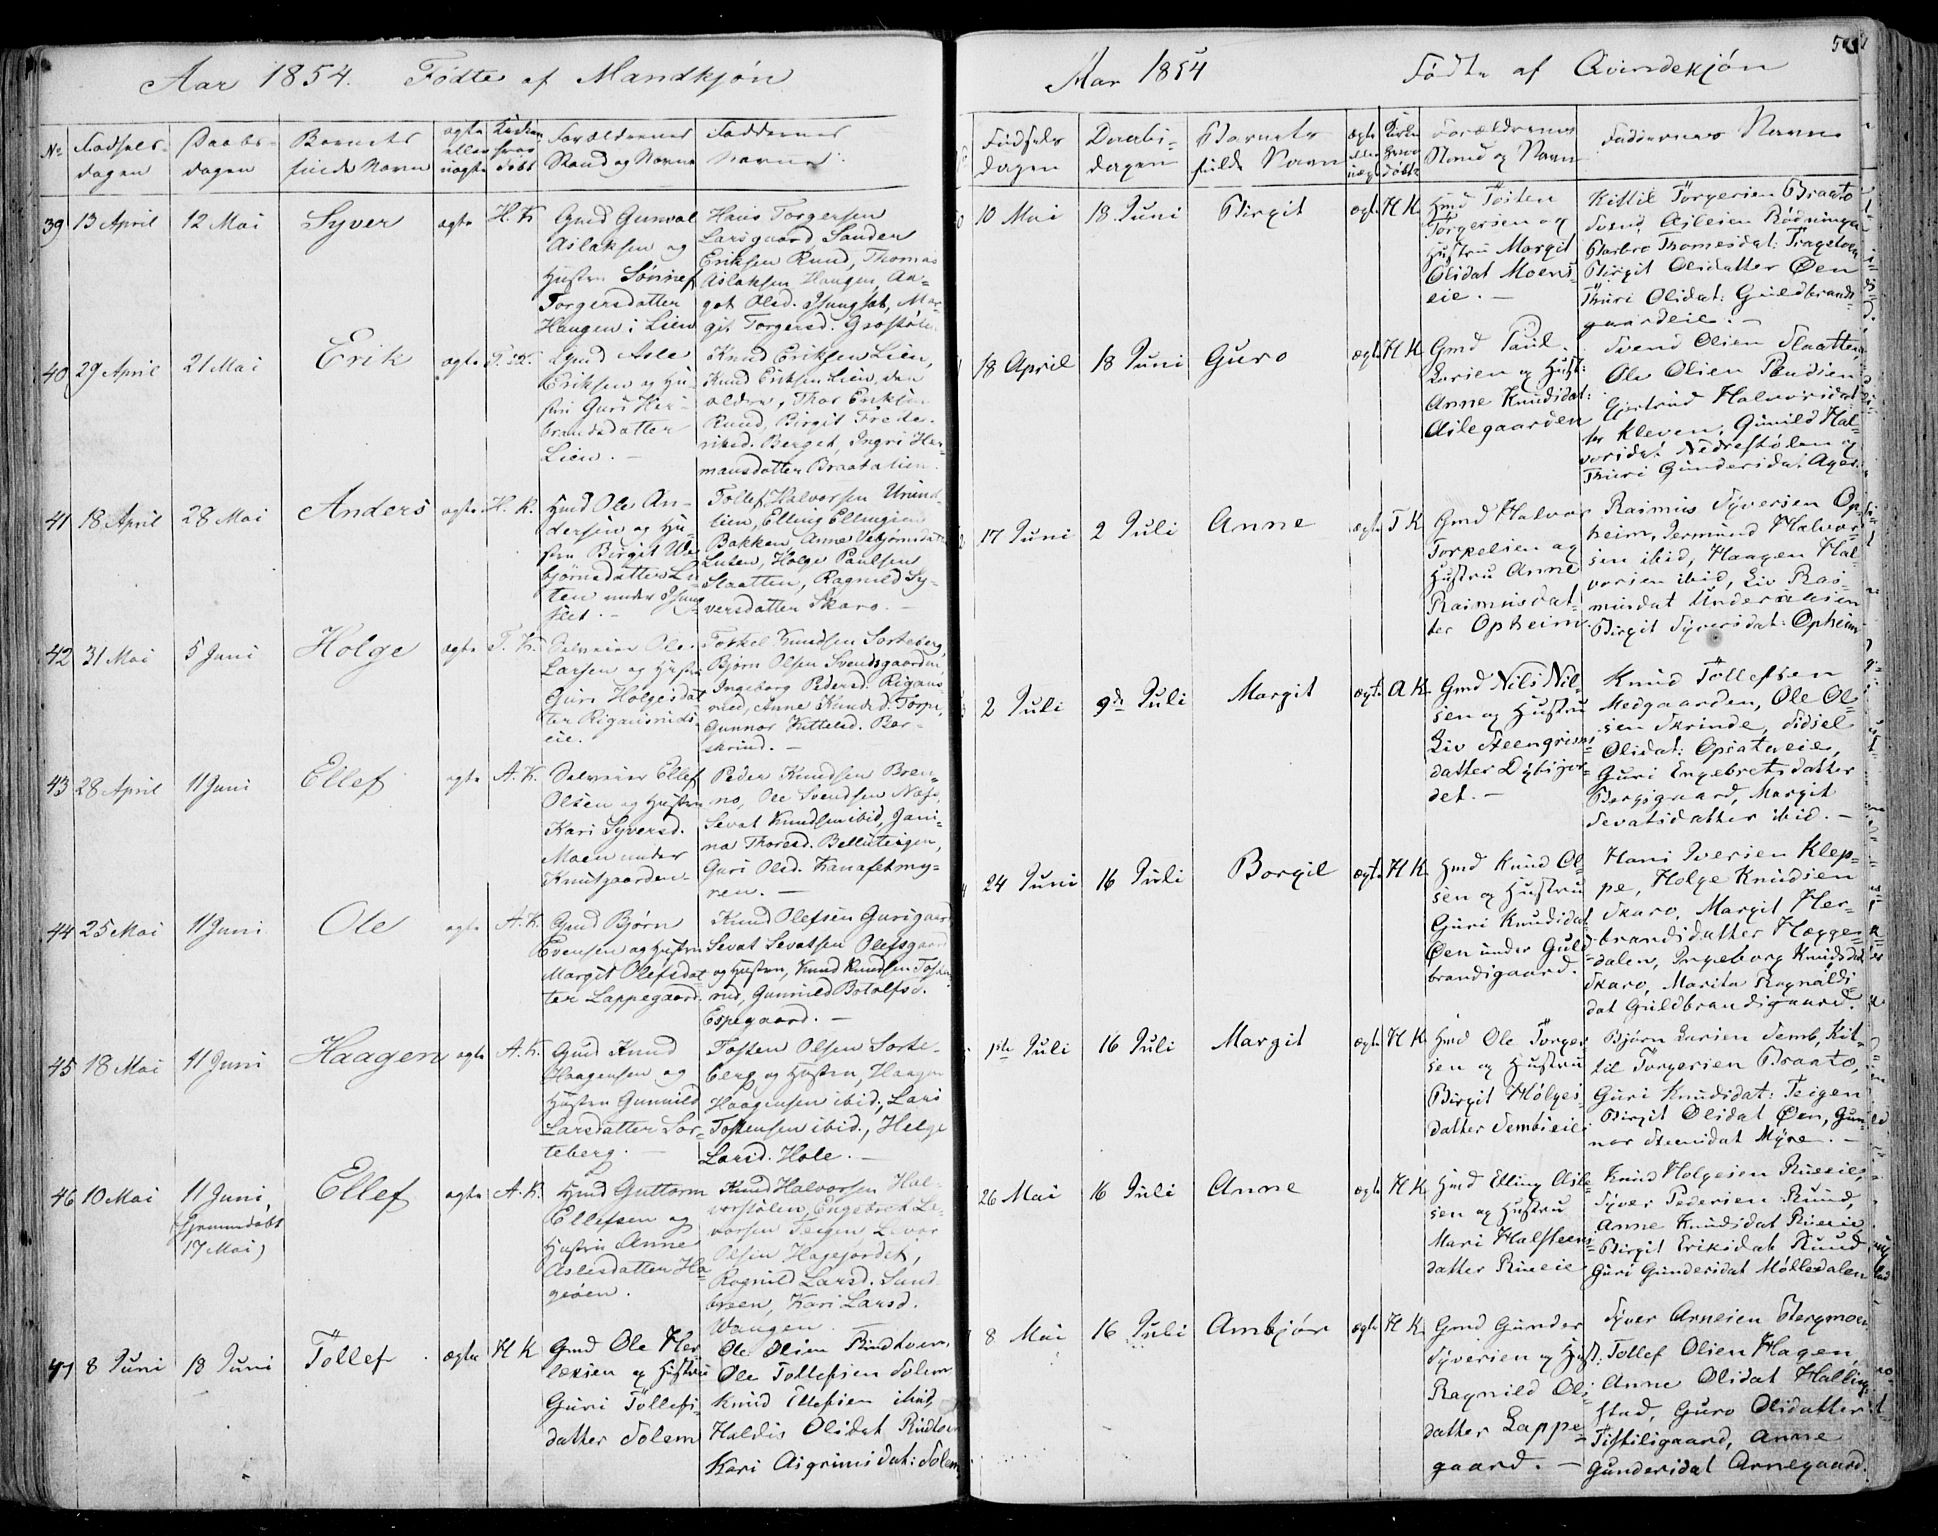 Aar 1854. Fødte af Mandkjøn
No
Fødsels-
dagen
Daabs-
dagen
Barnets
fulde Navn
ægte
eller
uægte
Kirken
hvor
døbt
Forældrenes
Stand og Navn
Faddernes
Navne
39 13 April 12 Mai Syver ægte H. K.
Gmd Gunval
Aslaksen og
Hustru Sønnef
Torgersdatter
Haugen i Lien
Hans Torgersen
Larsgaard, Sander
Eriksen Ruud, Thomas
Aslaksen Haugen, An-
got Olsd. Mar-
git Torgersd.
40 29 April 21 Mai Erik ægte T. K.
Gmd Asle
Eriksen og Hu-
stru Guri Her-
brandsdatter
Lien. -
Knud Eriksen Lien,
Knud Eriksen Lien, den
ældre, Thor Eriksen
Ruud, Birgit Frede-
riksd. Berget, Ingri Her-
mansdatter Braatalien.
41 18 April 28 Mai Anders ægte H. K.
Hmd Ole An-
dersen og Hu-
stru Birgit Ve-
bjørnsdatter
under
Tollef Halvorsen
lien, Elling Ellingsen
Bakken, Anne Vebjørnsdatter
Holge Paulsen
Slaatten, Ragnild Sy-
versdatter Skaro. -
42 31 Mai 5 Juni Holge ægte T. K.
Ole
Larsen og Hustru
Guri Holgesdat-
ter
eie.
Torkel Knudsen Sorteberg,
Bjørn Olsen Svendsgaarden,
Ingeborg Pedersd.
Anne Knudsd. Torpe,
Gunnor Kittelsd.
43 28 April 11 Juni Ellef ægte A. K.
Ellef
Olsen og Hustru
Kari Syversd.
Moen under
Knutgaarden
Peder Knudsen Bren-
no, Ole Svendsen
Sevat Knudsen ibid, Jani-
na Thoresd. Belluteigen,
Guri Olsd. Kanafetmy-
ren. -
44 25 Mai 11 Juni Ole ægte A. K.
Gmd Bjørn
Evensen og Hustru
Margit Olefsdat-
ter Lappegaard.
Knud Olefsen Gurigaard
Sevat Sevatsen Olefsgaard
og Hustru, Knud Knudsen
rud, Gunnild Botolfsd.
Espegaard. -
45 18 Mai 11 Juni Haagen ægte A. K.
Gmd Knud
Haagensen og
Hustru Gunnild
Larsdatter Sor-
teberg. -
Tosten Olsen Sorte-
berg og Hustru, Haagen
Haagensen ibid., Lars
Tostensen ibid., Helge
Larsd. Hole. -
46 10 Mai 11 Juni,
(hjemmedøbt
17 Mai)
Ellef ægte A. K.
Hmd Guttorm
Ellefsen og
Hustru Anne
Aslesdatter Ha-
gøen.
Knud Halvorsen Hal-
vorstølen, Engebret Le-
vorsen Teigen, Levor
Olsen Hagejordet,
Ragnild Larsd. Sund-
breen, Kari Larsd.
Wangen.
47 8 Juni 18 Juni Tollef ægte H K
Gmd Ole Her-
leksen og Hustru
Guri Tollefs-
datter Solem
Ole Olsen
Ole Tollefsen Solem
Knud Ellefsen ibid,
Haldis Olsdat
Kari Asgrimsdat: Solem
Aar 1854 Fødte af Qvindekjøn
Fødsels
dagen
Daabs-
dagen
Barnets
fulde Navn
ægte
eller
uægte
Kirken
hvor
døbt
Forældrenes
Stand og Navn
Faddernes Navne
10 Mai 18 Juni Birgit ægte H K
Hmd Tosten
Torgersen og
Hustru Margit
Olsdat Moens-
eie. -
Kittil Torgersen Braato
Svend Aslesen Rødningen
Barbro Thomesdat:
Birgit Olsdatter Øen
Thuri Olsdat: Guldbrands-
gaardeie. -
18 April 18 Juni Guro ægte H K
Gmd Paul
Larsen og Hust:
Anne Knudsdat:
Aslegaarden
Svend Olsen Slaatten,
Ole Olsen
Gjertrud Halvorsdat-
ter Kleven, Gunild Hal-
vorsdat. Nedrestølen og
Thuri Gundersdat
17 Juni 2 Juli Anne ægte T K
Gmd Halvor
Torkelsen og
Hustru Anne
Rasmusdat-
ter Opheim
Rasmus Syversen Op-
heim, Jermund Halvor-
sen ibid, Haagen Hal-
vorsen ibid, Liv Ras-
musdat
Birgit Syversdat: Opheim
2 Juli 9de Juli Margit ægte A K
Gmd Nils Nil-
sen og Hustru
Liv Steengrims-
datter Dybsjor-
det. -
Knud Tollefsen
Medgaarden, Ole Ol-
sen Skrinde, Sidsel
Olsdat:
Guri Engebretsdatter
Bergsgaard, Margit
Sevatsdatter ibid. -
24 Juni 16 Juli Borgil ægte H K
Hmd Knud Ol-
sen og Hustru
Guri Knudsdat
Øen under Guld-
brandsgaard.
Hans Iversen Klep-
pe, Holge Knudsen
Skaro, Margit Her-
brandsdatter Hægge-
dalen, Ingeborg Knudsdat
Skaro, Marita Ragnalds-
dat Guldbrandsgaard.
1ste Juli 16 Juli Margit ægte H K
Hmd Ole Torger-
sen og Hustru
Birgit Holges-
datter Sembseie
Bjørn Larsen Semb, Kit-
til Torgersen Braato,
Guri Knudsdat: Teigen
Birgit Olsdat Øen, Gun-
nor Steensdat Myre. -
26 Mai 16 Juli Anne ægte H K
Hmd Elling Asle-
sen og Hustru
Mari Halsteens-
datter Rueeie
Knud Holgesen Rueeie,
Syver Pedersen Ruud,
Anne Knudsdat Rueeie
Birgit Eriksdat Ruud
Guri Gundersdat Mølledalen
8 Mai 16 Juli Ambjør ægte H K
Gmd Gunder
Syversen og Hust:
Ragnild Ols-
datter Lappe-
gaard. -
Syver Arnesen Bergmoen
Tollef Olsen Hagen,
Anne Olsdat Halling-
stad, Guro Olsdatter
Anne
Gundersdat Arnegaard.